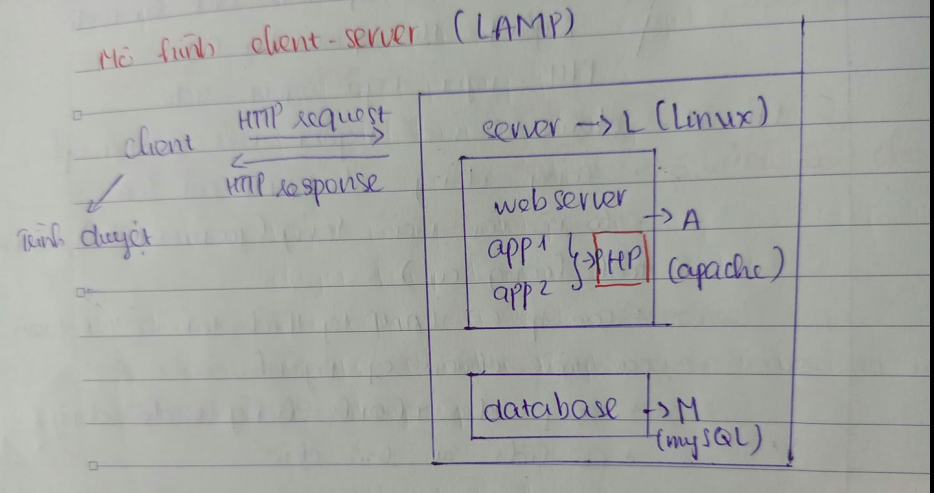 Mô hình client-server (LAMP)
HTTP request
client
HTTP response
trình duyệt
server → L (Linux)
web server
→ A
(apache)
app1
app2
} → PHP
database → M
(mySQL)